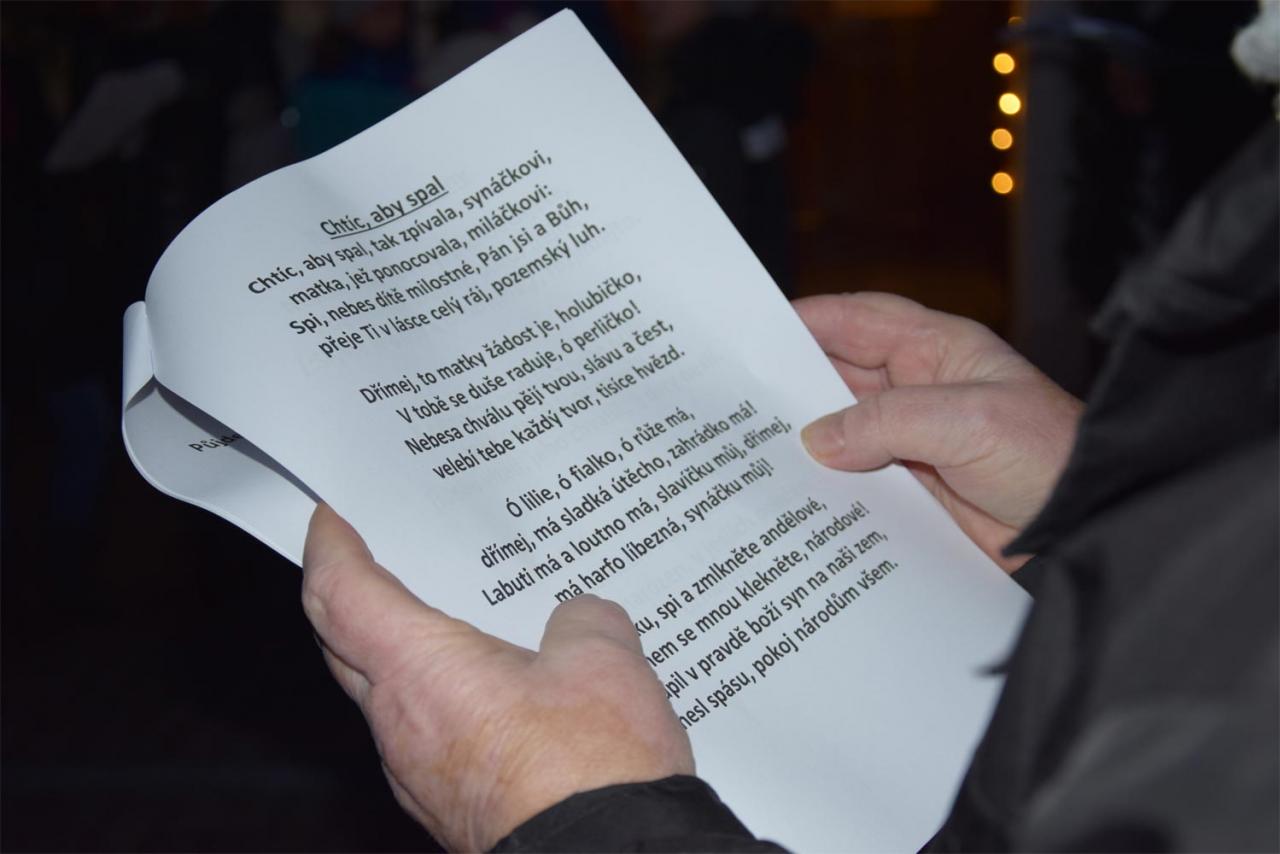 Chtíc, aby spal
Chtíc, aby spal, tak zpívala, synáčkovi,
matka, jež ponocovala, miláčkovi:
Spi, nebes dítě milostné, Pán jsi a Bůh,
přeje Ti v lásce celý ráj, pozemský luh.
Dřímej, to matky žádost je, holubičko,
V tobě se duše raduje, ó perličko!
Nebesa chválu pějí tvou, slávu a čest,
velebí tebe každý tvor, tisíce hvězd.
Ó lilie, ó fialko, ó růže má,
dřímej, má sladká útěcho, zahrádko má!
Labuti má a loutno má, slavíčku můj, dřímej,
má harfo líbezná, synáčku můj!
spi a zmlkněte andělové,
se mnou klekněte, národové!
v pravdě boží syn na naši zem,
spásu, pokoj národům všem.